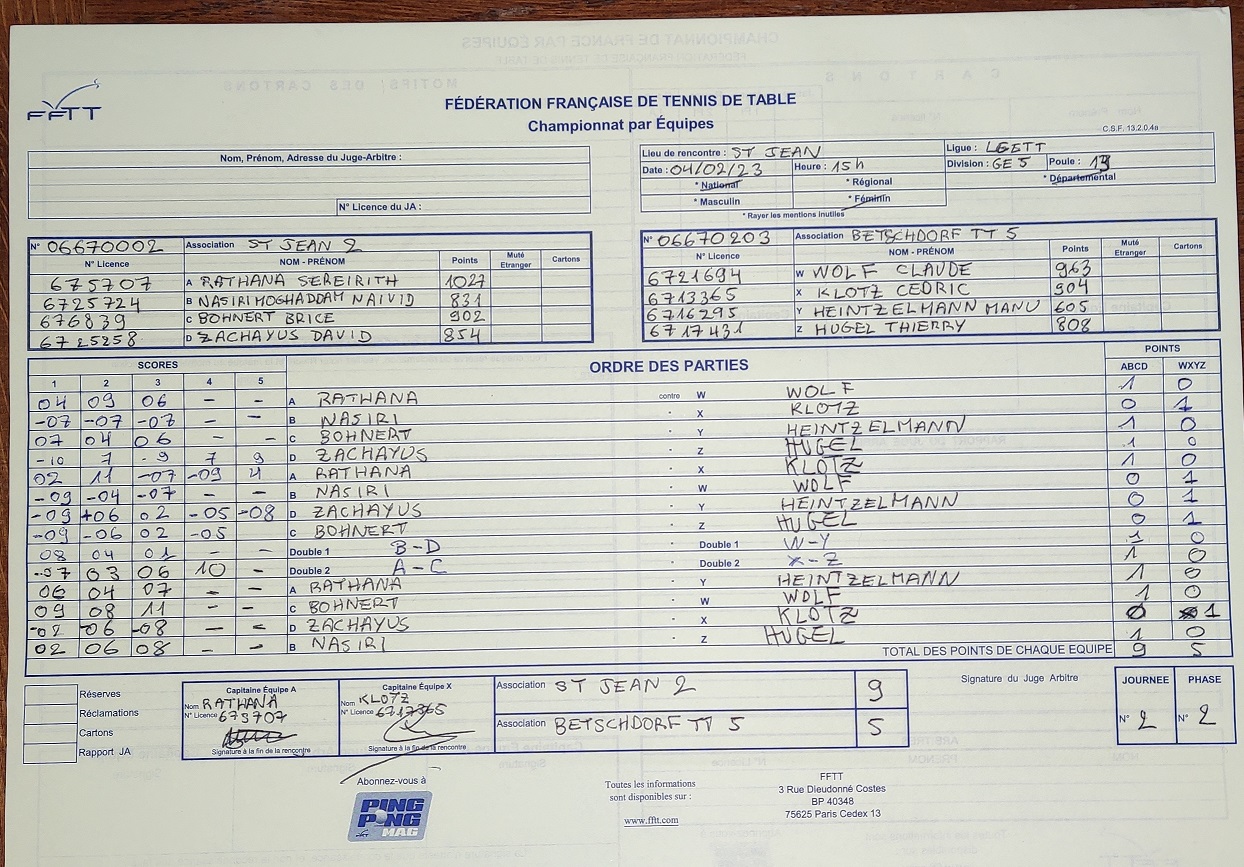 FFTT
FÉDÉRATION FRANÇAISE DE TENNIS DE TABLE
Championnat par Équipes
C.S.F. 13.2.0.4a
Nom, Prénom, Adresse du Juge-Arbitre :
N° Licence du JA :
Lieu de rencontre : ST JEAN Ligue : LGETT
Date : 04/02/23 Heure : 15 h Division : GE 5 Poule : 13
* National * Régional * Départemental
* Masculin * Féminin
* Rayer les mentions inutiles
N° 06670002 Association ST JEAN 2
N° Licence NOM - PRÉNOM Points Muté Etranger Cartons
675707 A RATHANA SEREIRITH 1027
6725724 B NASIRIMOGHADDAM NAIVID 831
676839 C BOHNERT BRICE 902
6725258 D ZACHAYUS DAVID 854
N° 06670203 Association BETSCHDORF TT 5
N° Licence NOM - PRÉNOM Points Muté Etranger Cartons
6721694 W WOLF CLAUDE 963
6713365 X KLOTZ CEDRIC 904
6716295 Y HEINTZELMANN MANU 605
6717431 Z HUGEL THIERRY 808
SCORES ORDRE DES PARTIES POINTS
1 2 3 4 5 ABCD WXYZ
04 09 06 - - A RATHANA contre W WOLF 1 0
-07 -07 -07 - - B NASIRI X KLOTZ 0 1
07 04 06 - - C BOHNERT Y HEINTZELMANN 1 0
-10 7 -9 7 9 D ZACHAYUS Z HUGEL 1 0
02 11 -07 -09 4 A RATHANA X KLOTZ 1 0
-09 -04 -07 - - B NASIRI W WOLF 0 1
-09 +06 02 -05 -08 D ZACHAYUS Y HEINTZELMANN 0 1
-09 -06 02 -05 C BOHNERT Z HUGEL 0 1
08 04 01 - - Double 1 B-D Double 1 W-Y 1 0
-07 03 06 10 - Double 2 A-C Double 2 X-Z 1 0
06 04 07 - - A RATHANA Y HEINTZELMANN 1 0
09 08 11 - - C BOHNERT W WOLF 1 0
-02 -06 -08 - - D ZACHAYUS X KLOTZ 0 1
02 06 08 - - B NASIRI Z HUGEL 1 0
TOTAL DES POINTS DE CHAQUE EQUIPE 9 5
Réserves
Réclamations
Cartons
Rapport JA
Capitaine Équipe A
Nom RATHANA
N° Licence 675707
Signature à la fin de la rencontre
Capitaine Équipe X
Nom KLOTZ
N° Licence 6717365
Signature à la fin de la rencontre
Association ST JEAN 2 9
Association BETSCHDORF TT 5 5
Signature du Juge Arbitre
JOURNEE PHASE
N° 2 N° 2
Abonnez-vous à
PING PONG MAG
Toutes les informations
sont disponibles sur :
www.fftt.com
FFTT
3 Rue Dieudonné Costes
BP 40348
75625 Paris Cedex 13